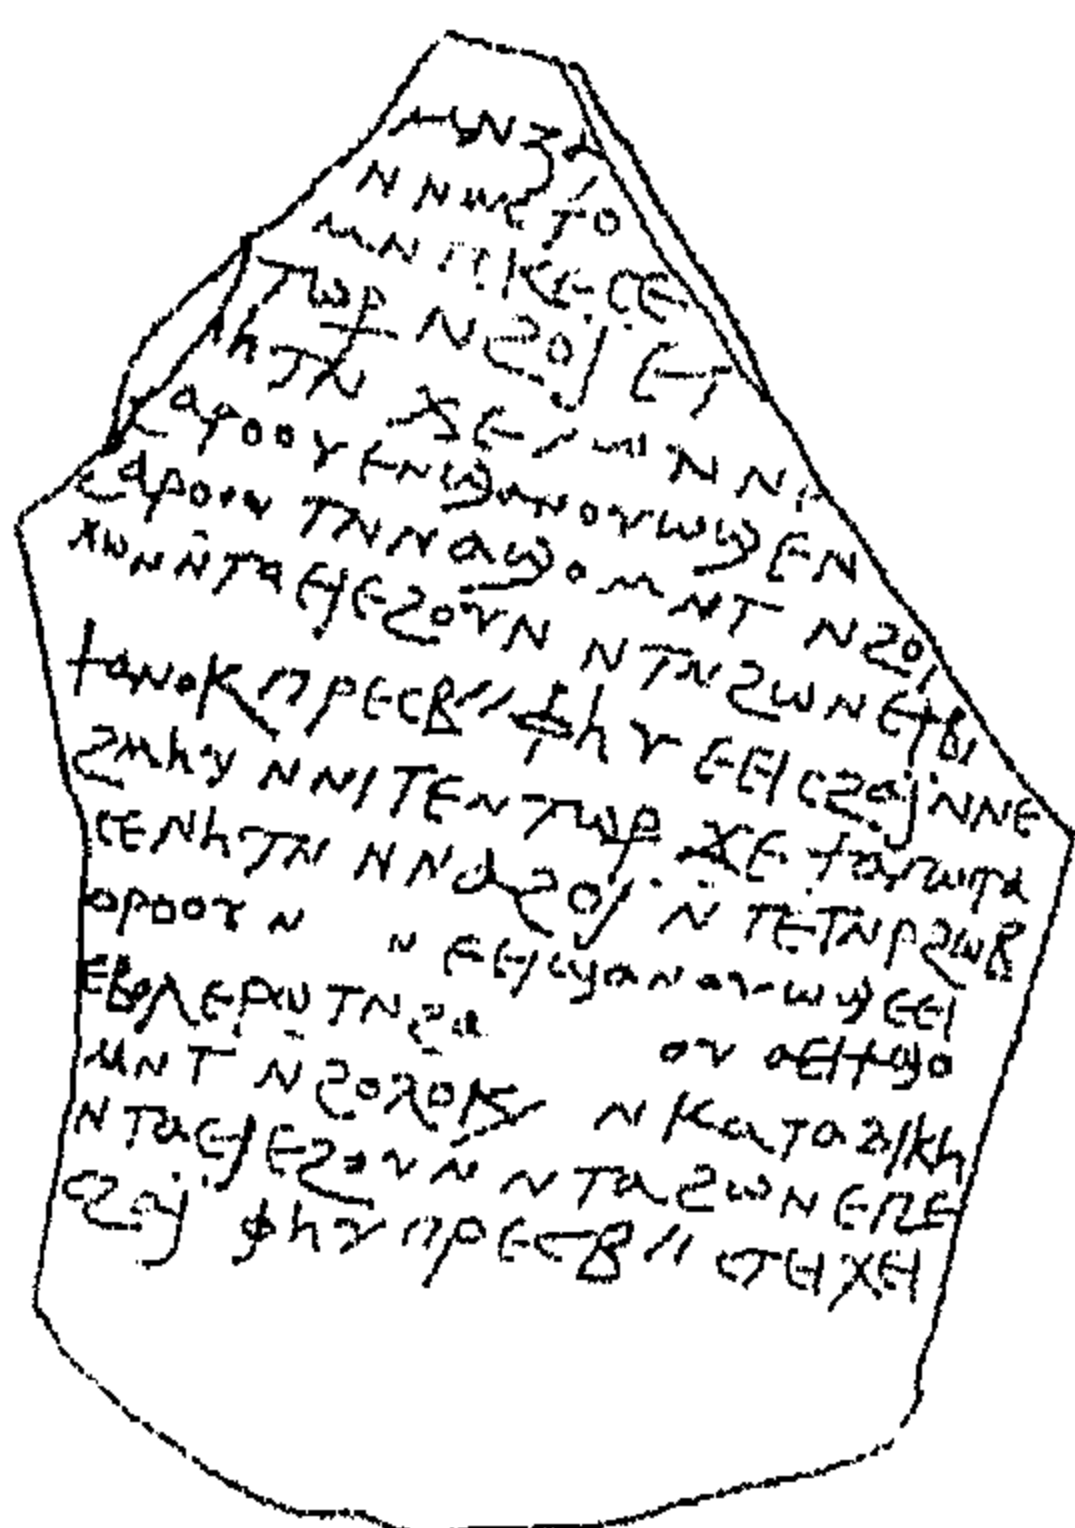 ⲙⲛ
ⲛⲛⲱⲥⲧⲟ
ⲙⲛⲡⲕⲉⲥⲉ
ⲧⲱⲣ ⲛϩⲟⲓ̈ ⲉⲧ
ⲏⲧⲛ ϫⲉ
ϩⲁⲣⲟⲟⲩ ⲉⲛϣⲁⲛⲟⲩⲱϣ ⲉⲛ
ϩⲁⲣⲟⲟⲩ ⲧⲛⲛⲁϣⲟⲙⲛⲧ ⲛϩⲟ
ⲭⲱⲛ ⲛ̄ⲧⲁⲉⲓ ⲉϩⲟⲩⲛ ⲛⲧⲛϩⲱⲛ
ϯⲁⲛⲟⲕ ⲡⲣⲉⲥⲃ// ⲫⲏⲩ ⲉⲉⲓⲥϩⲁⲓ̈ ⲛⲛⲉ
ϩⲙⲏⲩ ⲛⲛⲓⲧⲉⲛⲧⲱⲣ ϫⲉ
ⲥⲉⲛⲏⲧⲛ ⲛⲛⲁϩⲟⲓ̈ ⲛ̄ⲧⲉⲧⲛⲣϩⲱⲃ
ⲟⲣⲟⲟⲩ ⲛ ⲛ ⲉⲉⲓϣⲁⲛⲟⲩⲱϣ ⲉⲉⲓ
ⲉⲃⲟⲗ ⲉⲣⲱⲧⲛ ϩⲁ ⲟⲩ ⲁⲉⲓϯϣⲟ
ⲙⲛⲧ ⲛ̄ϩⲟⲗⲟⲕ/ ⲛⲕⲁⲧⲁⲇⲓⲕⲏ
ⲛⲧⲁⲉⲓ ⲉϩⲟⲩⲛ̄ ⲛⲧⲁϩⲱⲛ ⲉⲡⲉ
ⲥϩⲁⲓ̈ ⲫⲏⲩ ⲡⲣⲉⲥⲃ// ⲥⲧⲉⲓⲭⲉⲓ